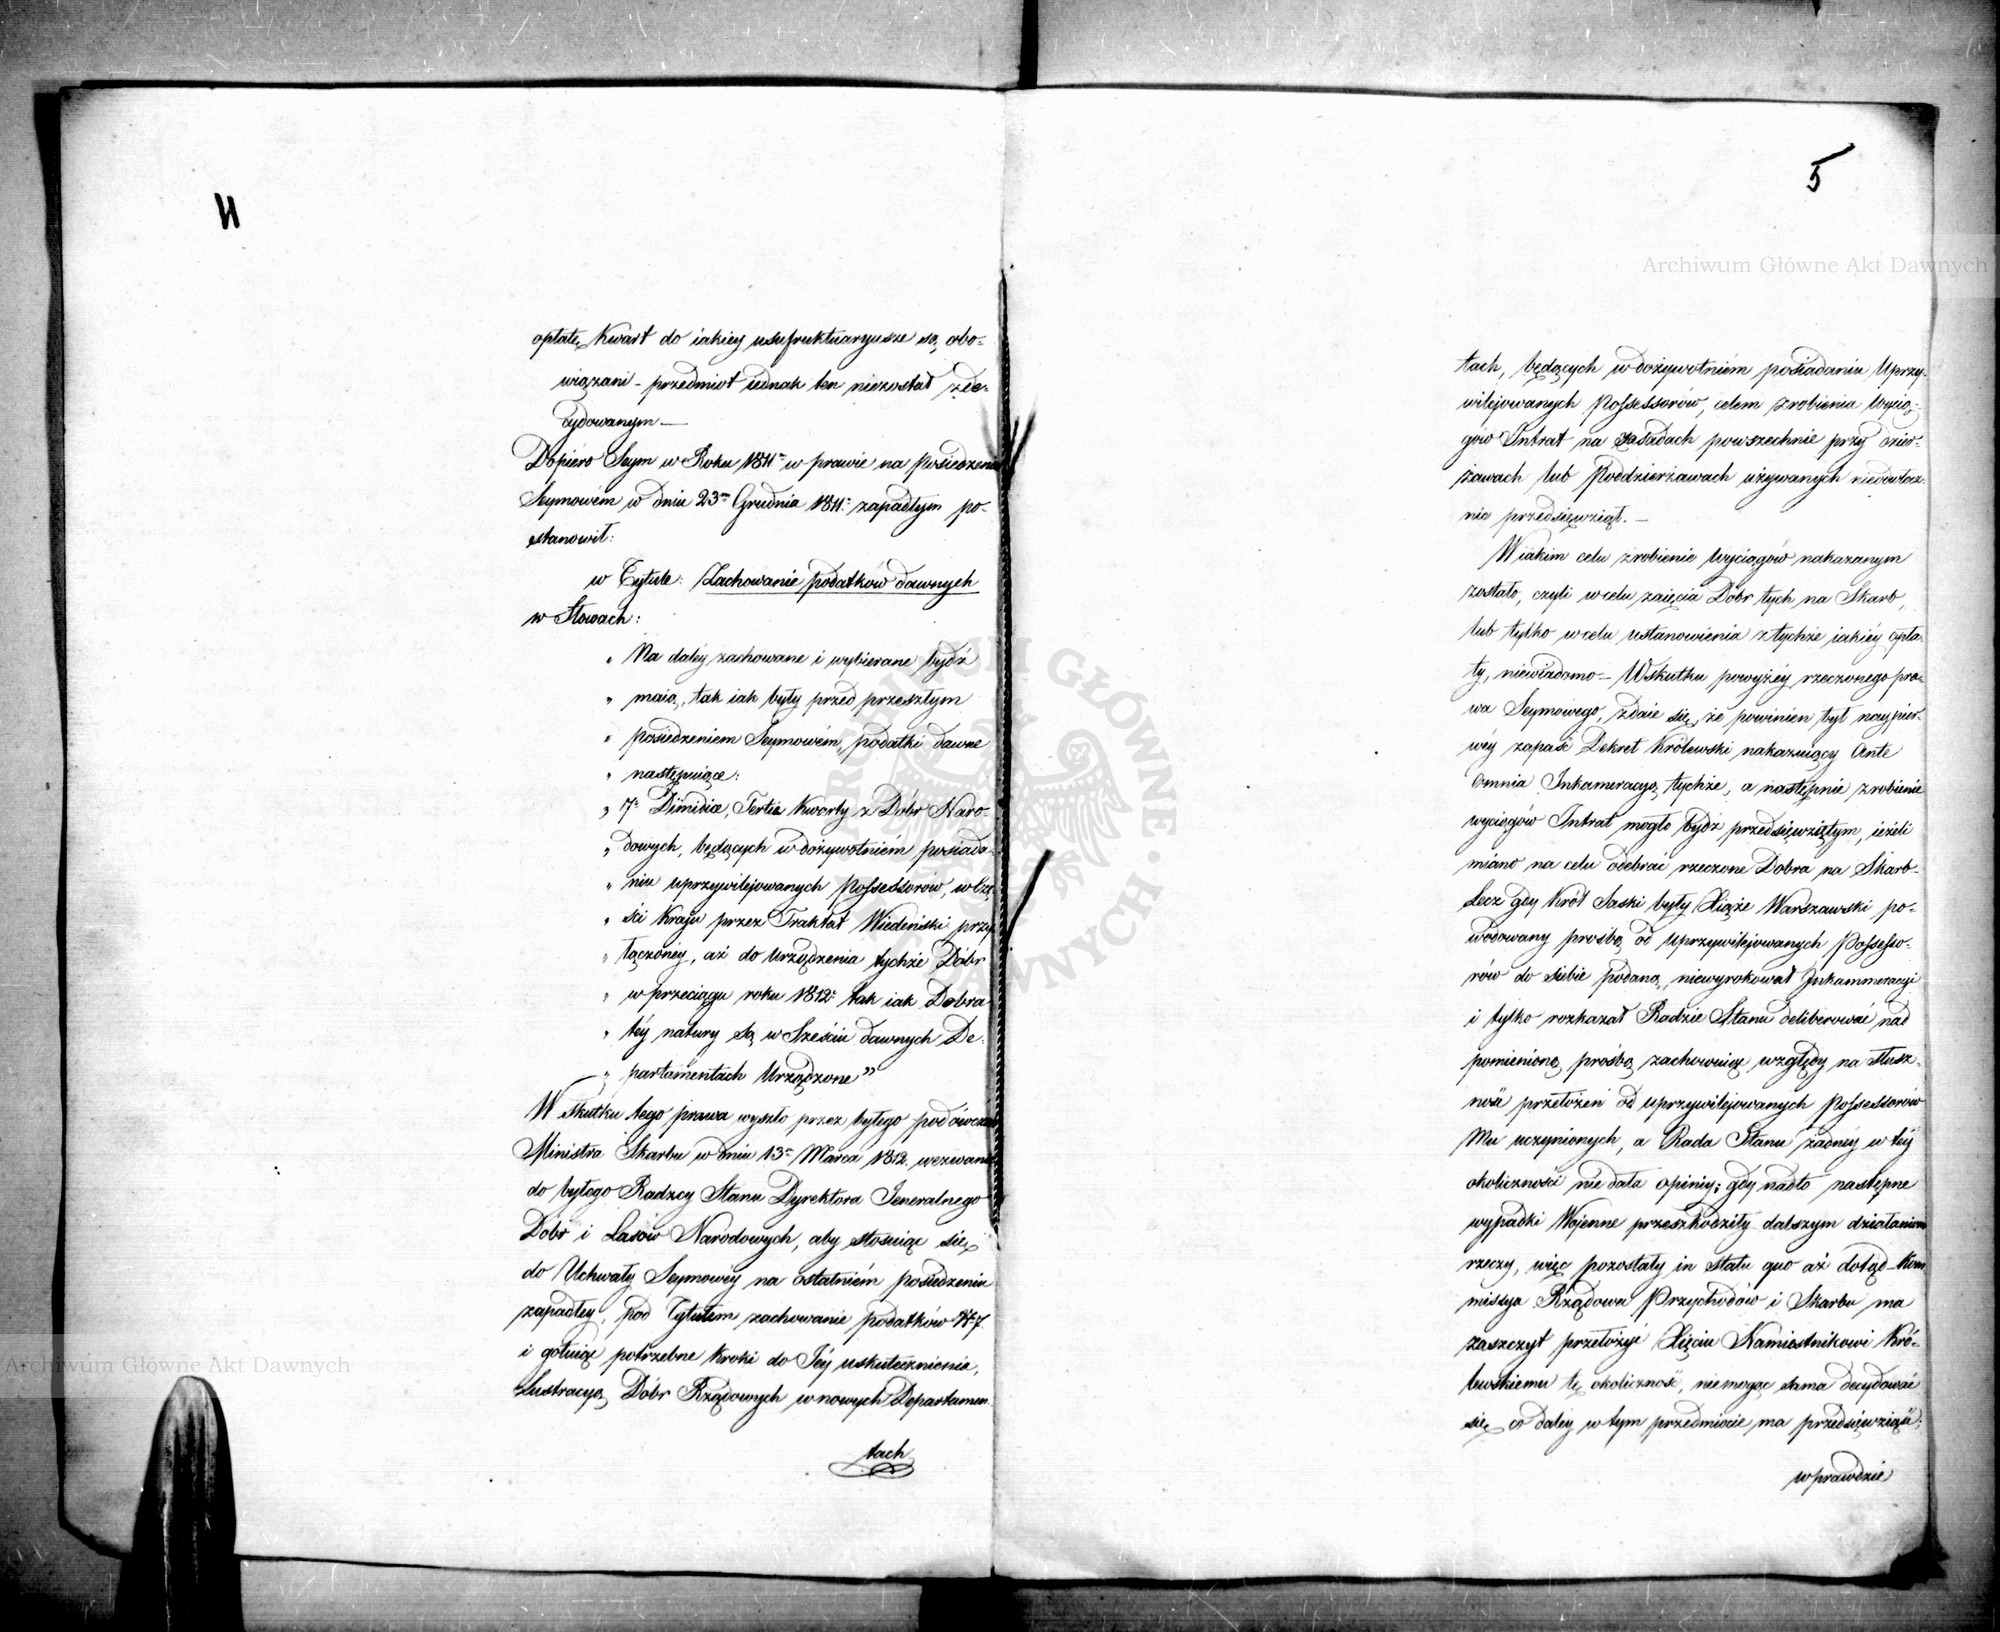 11
opłatę Kwart do iakiey usufruktuaryusze są obo-
wiązani - przedmiot iednak ten niezostał zde-
cydowanym —
Dopiero Seym w Roku 1811 w prawie na Posiedzeniu
Seymowém w dniu 23 Grudnia 1811 zapadłym po-
stanowił:
w Tytule: Zachowanie podatków dawnych
w Słowach:
„ Na daley zachowane i wybierane bydź
„ maią, tak iak były przed przeszłym
„ posiedzeniem Seymowém, podatki dawne
„ następuiące:
„ 7. Dimidiae, Tertiae Kwarty z Dóbr Naro-
„ dowych, będących w dożywotniém posiada-
„ niu uprzywilejowanych Possessorów, w Czę-
„ ści Kraju przez Traktat Wiedeński przy-
„ łączoney, aż do Urządzenia tychże Dóbr
„ w przeciągu roku 1812 tak iak Dobra
„ téy natury są w Sześciu dawnych De-
„ partamentach Urządzone”
W skutku tego prawa wyszło przez byłego podówczas
Ministra Skarbu w dniu 13 Marca 1812. wezwanie
do byłego Radzcy Stanu Dyrektora Jeneralnego
Dóbr i Lasów Narodowych, aby stosuiąc się
do Uchwały Seymowéy na ostatniém posiedzeniu
zapadłey, pod Tytułem zachowanie podatków N 7.
i gotuiąc potrzebne kroki do Jéy uskutecznienia,
Lustracyą Dóbr Rządowych w nowych Departamen-
tach
5
tach, będących w dożywotniém posiadaniu Uprzy-
wilejowanych Possessorów, celem zrobienia Wycią-
gów Intrat na zasadach powszechnie przy dzier-
żawach lub Poddzierżawach używanych niedwłocz-
nie przedsięwziął. —
W iakim celu zrobienie Wyciągów nakazanym
zostało, czyli w celu zaięcia Dóbr tych na Skarb,
lub tylko w celu ustanowienia z tychże iakiéy opła-
ty, niewiadomo - W skutku powyżéy rzeczonego pra-
wa Seymowego, zdaie się, że powinien był naypier-
wéy zapaść Dekret Królewski nakazuiący Ante
Omnia Inkameracyą tychże, a następnie zrobienie
wyciągów Intrat mogło bydź przedsięwziętym, ieżeli
miano na celu odebrać rzeczone Dobra na Skarb -
Lecz gdy Król Saski były Xiąże Warszawski po-
wodowany prośbą od uprzywilejowanych Possesso-
rów do siebie podaną, niewyrokował Inkammeracyi
i tylko rozkazał Radzie Stanu deliberować nad
pomienioną prośbą zachowuiąc względy na słusz-
ność przełożeń od uprzywilejowanych Possessorów
Mu uczynionych, a Rada Stanu żadnéy w téy
okoliczności nie dała opinii; gdy nadto następne
wypadki Wojenne przeszkodziły dalszym działaniom
rzeczy, więc pozostały in statu quo aż dotąd - Kom-
missya Rządowa Przychodów i Skarbu ma
zaszczyt przełożyć Xięciu Namiestnikowi Kró-
lewskiemu tę okoliczność, niemogąc sama decydować
się, co daléy w tym przedmiocie ma przedsięwziąść;
wprawdzie
Archiwum Główne Akt Dawnych
Archiwum Główne Akt Dawnych